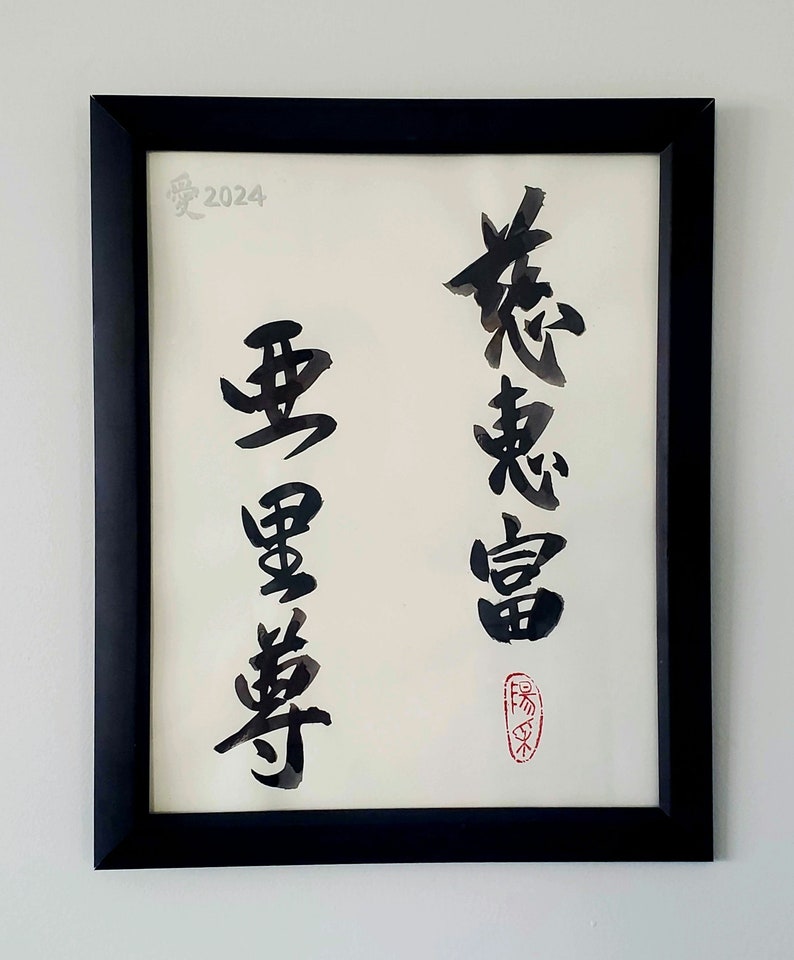 慈恵富
亜里尊
愛2024
陽采